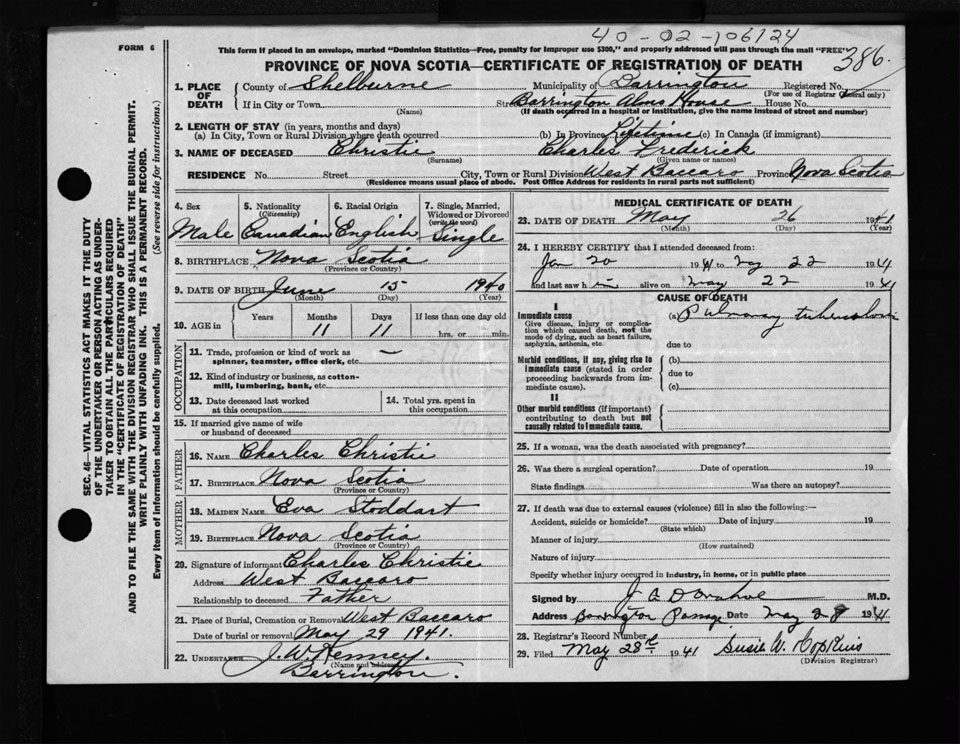 40-02-106124
386.
FORM 6
This form if placed in an envelope, marked "Dominion Statistics—Free, penalty for improper use $300," and properly addressed will pass through the mail "FREE"
PROVINCE OF NOVA SCOTIA—CERTIFICATE OF REGISTRATION OF DEATH
1. PLACE OF DEATH
County of Shelburne Municipality of Barrington Registered No.
(For use of Registrar General only)
If in City or Town Street Barrington Alms House House No.
(Name) (If death occurred in a hospital or institution, give the name instead of street and number)
2. LENGTH OF STAY (in years, months and days)
(a) In City, Town or Rural Division where death occurred (b) In Province Lifetime (c) In Canada (if immigrant)
3. NAME OF DECEASED Christie Charles Frederick
(Surname) (Given name or names)
RESIDENCE No. Street City, Town or Rural Division West Baccaro Province Nova Scotia
(Residence means usual place of abode. Post Office Address for residents in rural parts not sufficient)
4. Sex
Male
5. Nationality
(Citizenship)
Canadian
6. Racial Origin
English
7. Single, Married, Widowed or Divorced
(write the word)
Single
8. BIRTHPLACE Nova Scotia
(Province or Country)
9. DATE OF BIRTH June 15 1940
(Month) (Day) (Year)
10. AGE in Years Months Days If less than one day old
11 11 hrs. or min.
OCCUPATION
11. Trade, profession or kind of work as
spinner, teamster, office clerk, etc. —
12. Kind of industry or business, as cotton-
mill, lumbering, bank, etc.
13. Date deceased last worked
at this occupation
14. Total yrs. spent in
this occupation
15. If married give name of wife
or husband of deceased
FATHER
16. NAME Charles Christie
17. BIRTHPLACE Nova Scotia
(Province or Country)
MOTHER
18. MAIDEN NAME Eva Stoddart
19. BIRTHPLACE Nova Scotia
(Province or Country)
20. Signature of informant Charles Christie
Address West Baccaro
Relationship to deceased Father
21. Place of Burial, Cremation or Removal West Baccaro
Date of burial or removal May 29 1941.
22. UNDERTAKER J. W. Kenney.
(Name and address)
Barrington.
MEDICAL CERTIFICATE OF DEATH
23. DATE OF DEATH May 26 1941
(Month) (Day) (Year)
24. I HEREBY CERTIFY that I attended deceased from:
Jan 20 1941 to May 22 1941
and last saw him alive on May 22 1941
CAUSE OF DEATH
I
Immediate cause
Give disease, injury or complica-
tion which caused death, not the
mode of dying, such as heart failure,
asphyxia, asthenia, etc.
(a) Pulmonary tuberculosis
due to
Morbid conditions, if any, giving rise to
immediate cause (stated in order
proceeding backwards from im-
mediate cause).
(b)
due to
(c)
II
Other morbid conditions (if important)
contributing to death but not
causally related to immediate cause.
25. If a woman, was the death associated with pregnancy?
26. Was there a surgical operation? Date of operation 19
State findings Was there an autopsy?
27. If death was due to external causes (violence) fill in also the following:—
Accident, suicide or homicide? Date of injury 19
(State which)
Manner of injury
(How sustained)
Nature of injury
Specify whether injury occurred in industry, in home, or in public place
Signed by J A Donahoe M.D.
Address Barrington Passage Date May 28 1941
28. Registrar's Record Number
29. Filed May 28th 1941 Susie W. Hopkins
(Division Registrar)
SEC. 46—VITAL STATISTICS ACT MAKES IT THE DUTY
OF THE UNDERTAKER OR PERSON ACTING AS UNDER-
TAKER TO OBTAIN ALL THE PARTICULARS REQUIRED
IN THE "CERTIFICATE OF REGISTRATION OF DEATH"
AND TO FILE THE SAME WITH THE DIVISION REGISTRAR WHO SHALL ISSUE THE BURIAL PERMIT.
WRITE PLAINLY WITH UNFADING INK. THIS IS A PERMANENT RECORD.
Every item of information should be carefully supplied. (See reverse side for instructions.)